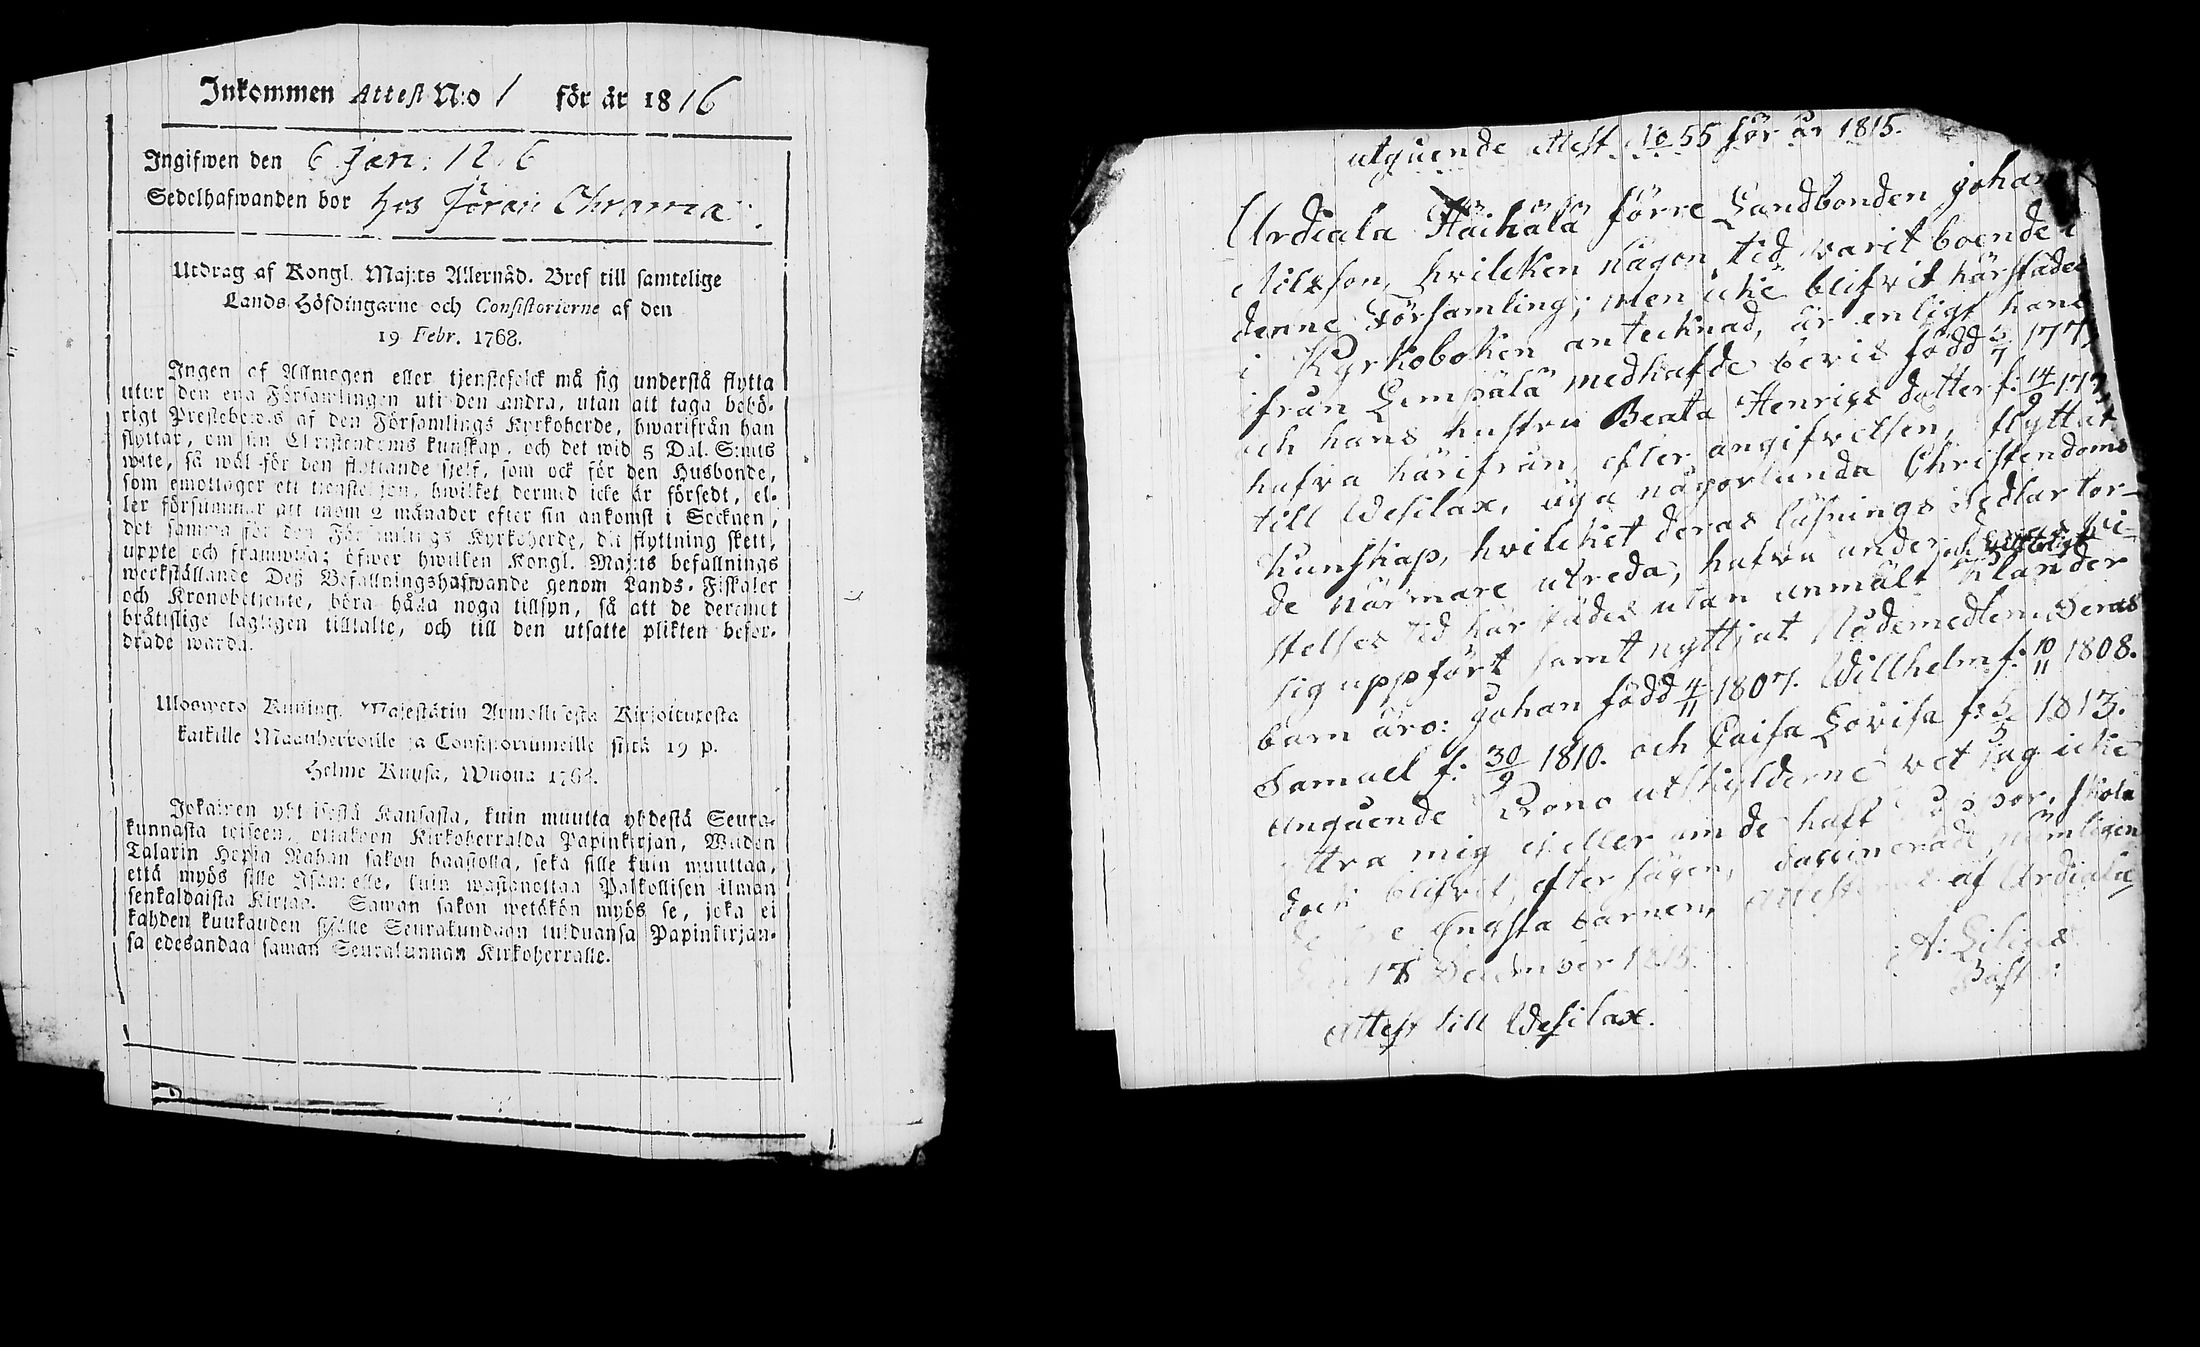 Inkommen Attest N:o 1 för år 1816
Ingifwen den 6 Jan: 1816
Sedelhafwanden bor hos Jöran Chrawia
Utdrag af Kongl. Maj:ts Allernåd. Bref till samtelige
Lands-Höfdingarne och Consistorierne af den
19 Febr. 1768.
Ingen af Allmogen eller tjenstefolck må sig understå flytta
utur den ena Församlingen uti den andra, utan att taga behö-
rigt Prestebewis af den Församlings Kyrkoherde, hwarifrån han
flyttar, om sin Christendoms kunskap, och det wid 5 Dal. S:mts
wite, så wäl för den flyttande sjelf, som ock för den Husbonde,
som emottager ett tienstehjon, hwilket dermed icke är försedt, el-
ler försummar att inom 2 månader efter sin ankomst i Socknen,
det samma för den Församlings Kyrkoherde, dit flyttning skett,
uppte och framwisa; öfwer hwilken Kongl. Maj:ts befallnings
werkställande Deß Befallningshafwande genom Lands-Fiskaler
och Kronobetjente, böra hålla noga tillsyn, så att de deremot
bråttslige lagligen tilltalte, och till den utsatte plikten befor-
drade warda.
Ulosweto Kuning. Majestätin Armollisesta Kirjoituxesta
kaikille Maanherroille ja Consistoriumeille siitä 19 p.
Helme Kuusa, Wuona 1768.
Jokainen yhteisestä Kansasta, kuin muutta yhdestä Seura-
kunnasta toiseen, ottakoon Kirkoherralda Papinkirjan, Wiiden
Talarin Hopia Rahan sakon haastolla, sekä sille kuin muuttaa,
että myös sille Isännelle, kuin wastanottaa Palkollisen ilman
senkaldaista Kirjaa. Saman sakon wetäkön myös se, joka ei
kahden kuukauden sisälle Seurakundaan tulduansa Papinkirjan-
sa edesandaa saman Seurakunnan Kirkoherralle.
utguende attest No 55 för år 1815.
Urdiala Häihälä förre Landbonden Johan
Nilsson, hvilcken någon tid varit boende i
denne Församling; men icke blifvit härstädes
i Kyrkoboken antecknad, är enligt hans
ifrån Lempälä medhafde bevis född 5/7
och hans hustru Beata Henrigs dotter f: 14/9
hafva härifrån, efter angifvelsen, flyttat
till Wesilax, äga någorlunda Christendoms
kunskap, hvilcket deras läsnings Sedlar tor-
de närmare utreda, hafva under
stelses tid härstädes utan anmält klander
sig uppfört samt nyttjat Nådemedlen. Deras
barn äro: Johan född 4/11 1807. Willhelm f: 10/11 1808.
Samuel f: 30/9 1810. och Caisa Lovisa f: 5/5 1813.
Anguende Crono utskylderne vet jag icke
yttra mig ej eller om de haft koppor, skola
dock blifvit, efter sägen, vaccinerade, nämligen
de tre yngsta barnen, Attesterar af Urdiala
den 18 December 1815.
A: Lilius
Past:
Attest till Wesilax.